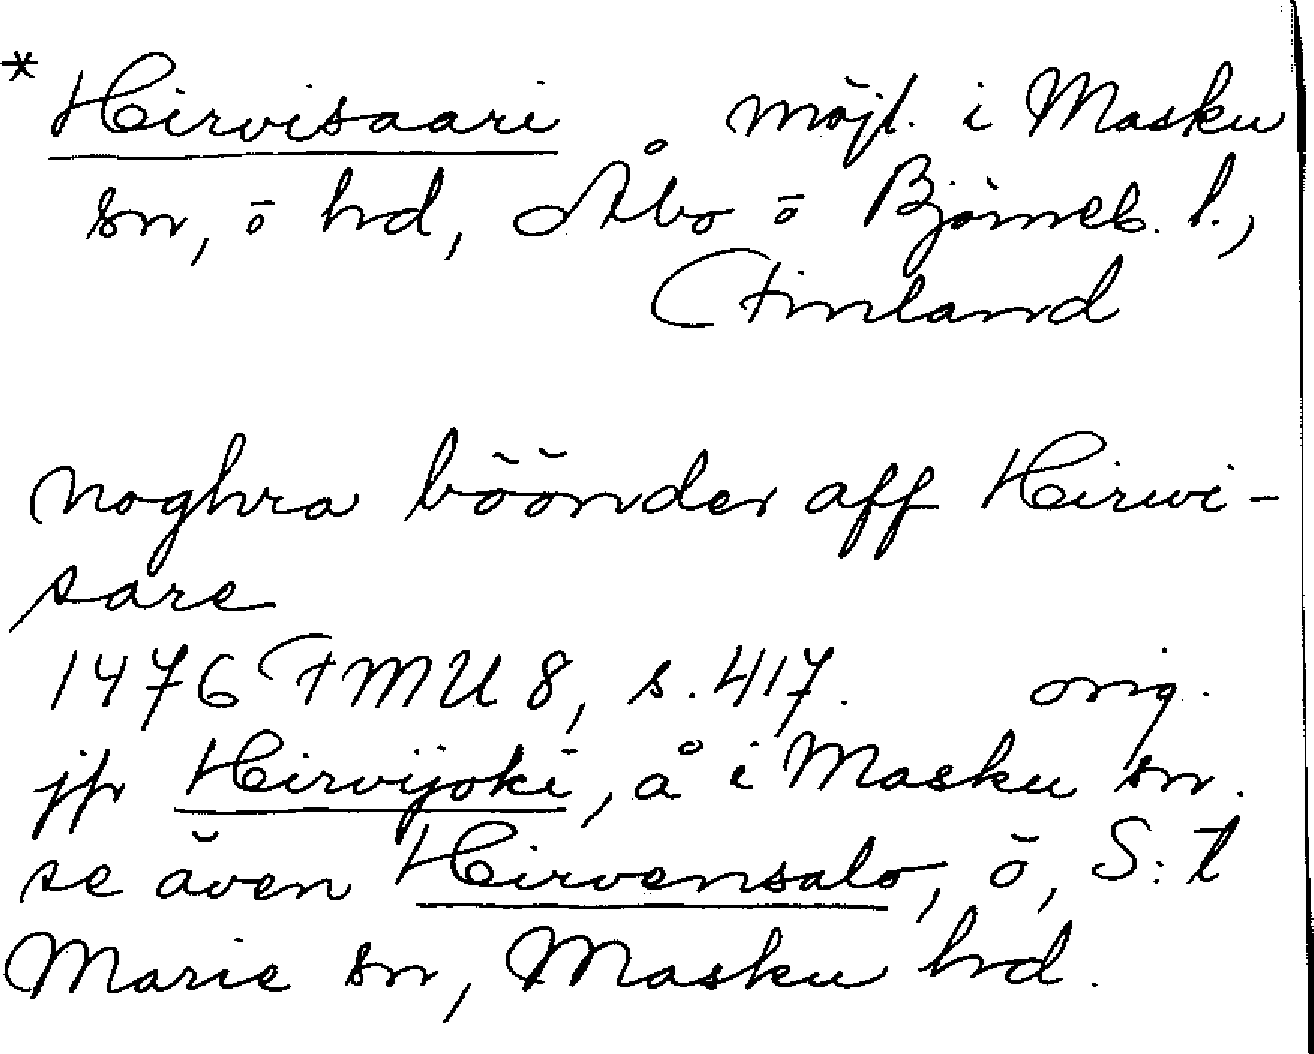 * Hirvisaari möjl. i Masku
sn, ö hd, Åbo ö Björneb. l.,
Finland
noghra böönder aff Hirwi-
sare
1476 FMU 8, s. 417. orig.
jfr Hirvijoki, å i Masku sn.
se även Hirvensalo, ö, S:t
Marie sn, Masku hd.